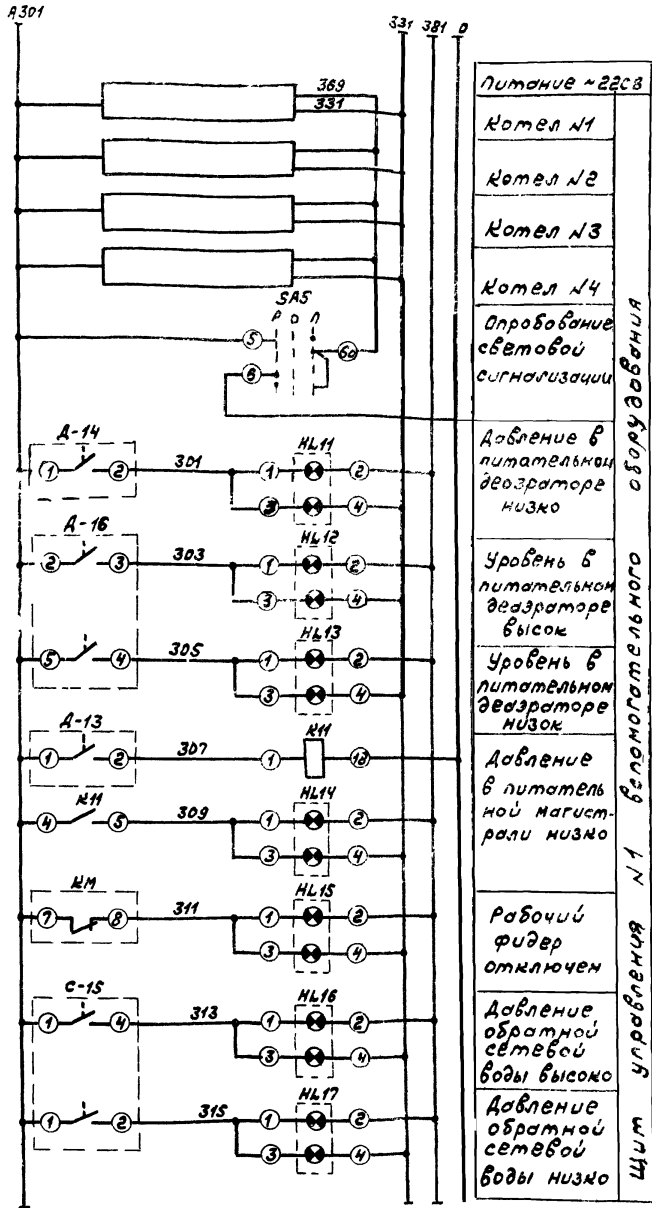 А301
331 381 0
369
331
SA5
Р О Л
5
6а
6
Д-14
1 2 301
HL11
1 2
3 4
Д-16
2 3 303
HL12
1 2
3 4
5 4 305
HL13
1 2
3 4
Д-13
1 2 307
К11
1
4 К11 5 309
HL14
1 2
3 4
КМ
7 8 311
HL15
1 2
3 4
С-15
1 4 313
HL16
1 2
3 4
1 2 315
HL17
1 2
3 4
Питание ~220В
Котел N1
Котел N2
Котел N3
Котел N4
Опробование
световой
сигнализации
Давление в
питательном
деаэраторе
низко
Уровень в
питательном
деаэраторе
высок
Уровень в
питательном
деаэраторе
низок
Давление
в питатель
ной магист-
рали низко
Рабочий
фидер
отключен
Давление
обратной
сетевой
воды высоко
Давление
обратной
сетевой
воды низко
Щит управления N1 вспомогательного оборудования